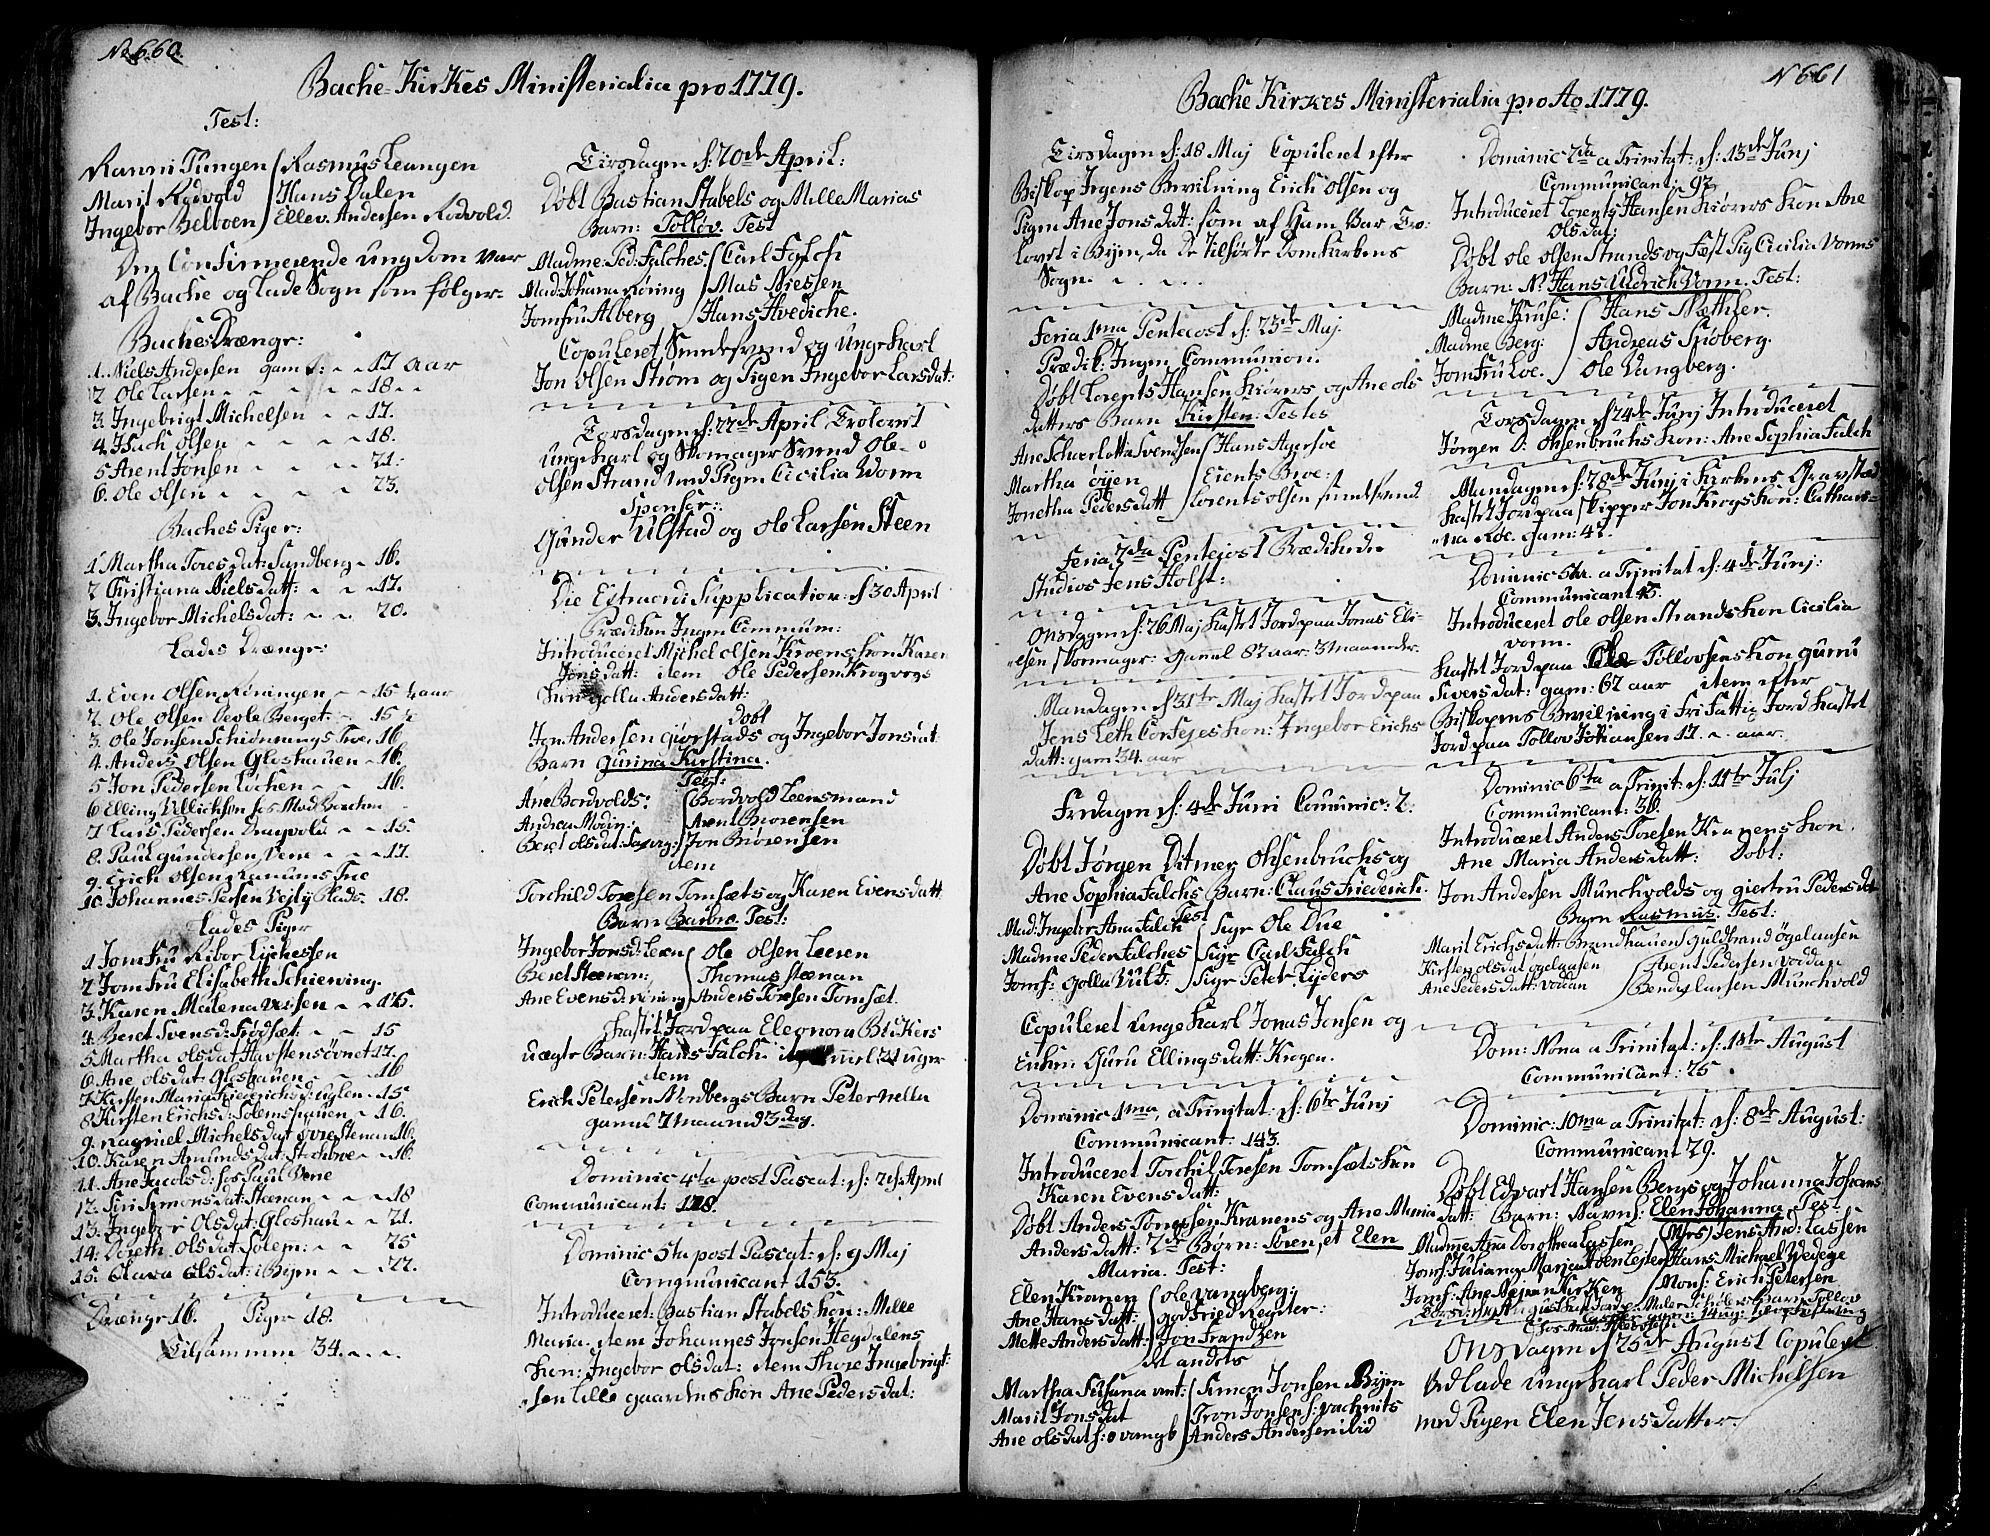 No 660.
Bache-Kirkes Ministerialia pro 1779.
Test:
Ranni Tungen / Rasmus Leangen
Marit Rodvold / Hans Dalen
Ingebor Belboen / Ellev. Andersen Rodvold.
Den Confirmerende Ungdom var
af Bache og Lade Sogn som følger
Baches Drænge:
1. Niels Andersen gam: 17 aar
2 Ole Larsen 18
3 Ingebrigt Michelsen 17.
4. Isach Olsen 18.
5 Arent Jonsen 21.
6. Ole Olsen 23.
Baches Piger:
1 Martha Toresdat: Sandberg 16.
2 Christiana Nielsdatt: 17.
3. Ingebor Michelsdat: 20.
Lades Drænge:
1. Even Olsen Røningen 15 ½ aar
2. Ole Olsen Berget 15 ½
3. Ole Jonsen 16
4. Anders Olsen Gloshauen 16.
5 Jon Pedersen Løchen 16.
6 Elling Ullichsøn hos Mad:
7 Lars Pedersen Dragvold 15.
8. Paul Gundersen Vene 17.
9. Erich Olsen
10. Johannes Persen Plads 18.
Lades Piger
1 Jomfru Ribor Lychessen
2 Jomfru Elisabeth Schierving.
3. Karen Malena 15.
4. Beret Svensd: Frodsæt 15
5 Martha Olsdat Havstensøvnet 17.
6. Ane Olsdat: Gloshauen 16
7. Kirsten Maria Friderichsd: Uglen 15
8 Kirsten Erichsd: Solemshauen 16.
9. Ragniel Michelsdat Øvre Stenan 16.
10. Karen Amundsdat: 16.
11. Ane Jacobsd: hos Paul Vene
12. Siri Simonsdat: Steenan 18
13. Ingebor Olsdat: Gloshau 21.
14. Doreth. Olsdat Solem: 25
15. Clara Olsdat: i Byen 22.
Drænge 16. Piger 18.
Tilsammen 34.
Tirsdagen d: 20de April:
Døbt Bastian Stabels og Mille Marias
Barn: Tollöv. Test
Madme: Ped: Falches / Carl Falch
Mad: Johana Röring / Mas Niessen
Jomfru Alberg / Hans Hvediche.
Copuleret Smedesvend og Ungekarl
Jon Olsen Strøm og Pigen Ingebor Larsdat:
Torsdagen d: 22de April Troloret
Ungekarl og Skomager Svend Ole
Olsen Strand med Pigen Cicilia Worm
Sponsor:
Gunder Ulstad og Ole Larsen Steen
Die Extraordi Supplication: d 30 April
Prædiken Ingen Commun:
Introduceret Michel Olsen Kroens kon Karen
Jonsdatt: item Ole Pedersen Krogvogs
kun Golla Andersdatt:
Døbt
Jon Andersen Giörstads og Ingebor Jonsdat:
Barn Gurina Kirstina.
Test:
Ane Bordvolds: / Bordvold Leensmand
Andrea Modin: / Arent Biörensen
Beret Olsdat: / Jon Biörensen
Item
Torchild Toresen Tomsæts og Karen Evensdatt
Barn Barbro. Test:
Ingebor Jonsd: Leren / Ole Olsen Leeren
Beret Steenan: / Thomas Steenan
Ane Evensd: Röning / Anders Toresen Tomsæt.
Kastet Jord paa Eleonora Böckers
uægte Barn: Hans Falch. gammel 21 uger
Item
Erich Petersen Nordbergs Barn Peternella
gammel 7 maaned 3 dag.
Dominic 4ta post Pascat: d: 2 d: April
Communicant: 128.
Dominic 5ta post Pascat: d: 9 Maj
Communicant 153.
Introduceret: Bastian Stabels kon: Mille
Maria. item Johannes Jonsen Hegdalens
kon: Ingebor Olsdat: item Thore Ingebrigt:
sen Lille gaardens kon Ane Pedersdat:
N 661
Bache Kirkes Ministerialia pro Ao 1779.
Tirsdagen d: 18 Maj Copuleret efter
Biskop Irgens Bevilning Erich Olsen og
Pigen Ane Jonsdatt: som af Ham Bar Tro:
lovet i Byen, da de tilhørte Domkirkens
Sogn.
Feria 1ma Pentecost d: 23de Maj.
Prædik: Ingen Communion.
Døbt Lorents Hansen Kiörens og Ane Ols
datters Barn Kirsten: Testes
Ane Scharlotta Svendsen / Hans Agersøe
Martha Öyen / Eient Broe:
Jonetha Pedersdatt / Lorents Olsen
Feria 2da Pentecost Prædikede
Studios Jens Holst:
Onsdagen d: 26 Maj Kastet Jord paa Jonas Eli-
esen Skomager: gammel 82 aar: 3 maaneder.
Mandagen d 31te Maj Kastet Jord paa
Jens Leth kon: Ingebor Erichs
datt: gam 34. aar
Fredagen d: 4de Juni Comunic: 2.
Døbt Jörgen Ditmer Ohsenbruchs og
Ane Sophia Falchs Barn: Claus Friederich.
Test
Mad: Ingeter Ana Falch / Sigr Ole Due
Madme Peder Falches / Sigr Carl Falch
Jomf: Golla / Sigr Peter Lyders
Copuleret Ungekarl Jonas Jonsen og
Enken Guru Ellingsdatt: Krogen.
Dominic 1ma, a Trinitat: d: 6te Junj
Communicant: 143.
Introduceret Torchil Toresen Tomsæts kon
Karen Evensdatt:
Døbt Anders Toresen Kranens og Ane Maria
Andersdatt: 2de Børn: Soren, et Elen
Maria. Test:
Elen Kranen / Ole Vangberg;
Ane Hansdatt: / Godfried Regter:
Mette Andersdatt: / Jon Frandzen
det andets
Martha Susana vint: / Simon Jonsen Byen
Marit Jonsdat / Tron Jonsen
Ane Olsdat: / Anders Andersen ibid
Dominic 2da a Trinitat: d: 13de Junj
Communicant: 92
Introduceret Lorents Hansen Kiörens kon Ane
Olsdat:
Døbt Ole Olsen Strands og Fæst Pig Cicilia Vorms
Barn: N. Hans Uldrich Vorm. Test:
Madme Kruse: / Hans Næthler.
Madme Berg: / Andreas Siöberg.
Jomfru Loe. / Ole Vangberg.
Torsdagen d 24de Junj Introduceret
Jørgen D: Ohsenbruchs kon: Ane Sophia Falch
Mandagen d: 28de Junj i Kirkens Gravsted
Kastet Jord paa Skipper Jon Krogs kon: Cathari-
na Röe. gam: 41.
Dominic 5ta. a Trinitat d: 4de Junj:
Communicant 45.
Introduceret Ole Olsen Strands kon Cicilia
Vorm.
Kastet Jord paa Ole Tollovsens kon Guru
Siversdat: gam: 62 aar item efter
Biskopens Bevilning i Fri Fattig Jord Kastet
Jord paa Tollov Johansen 17. aar.
Dominic 6ta a Trinit: d: 11te Julj
Communicant: 36.
Introduceret Anders Toresen Kranens kon.
Ane Maria Andersdatt: Døbt:
Jon Andersen Munchvolds og Giertru Pedersdat
Barn Rasmus. Test:
Marit Erichsdatt: Brandhauen / Guldbrand Øgelausen
Kirsten Olsdat Øgelausen / Arent Pedersen Voddan
Ane Pedersdatt: Voddan / Bendt Larsen Munchvold
Dom: Nona a Trinitat: d: 1ste August
Communicant: 25
Dominic: 10ma a Trinitat: d: 8de August:
Communicant 29.
Døbt Edvart Hansen Bergs og Johanna Johans
datt: Barn: Navnl: Elen Johanna. Test
Madme Anna Dorothea Lassen / Mrs) Jens And: Lassen
Jomf: Juliana Maria / Hans Michael Wesege
Jomf: Ane Kirken / Mons: Erich Petersen
Onsdagen d 25de August Copuleret
Ved Lade Ungekarl Peder Michelsen
med Pigen Elen Jensdatter.